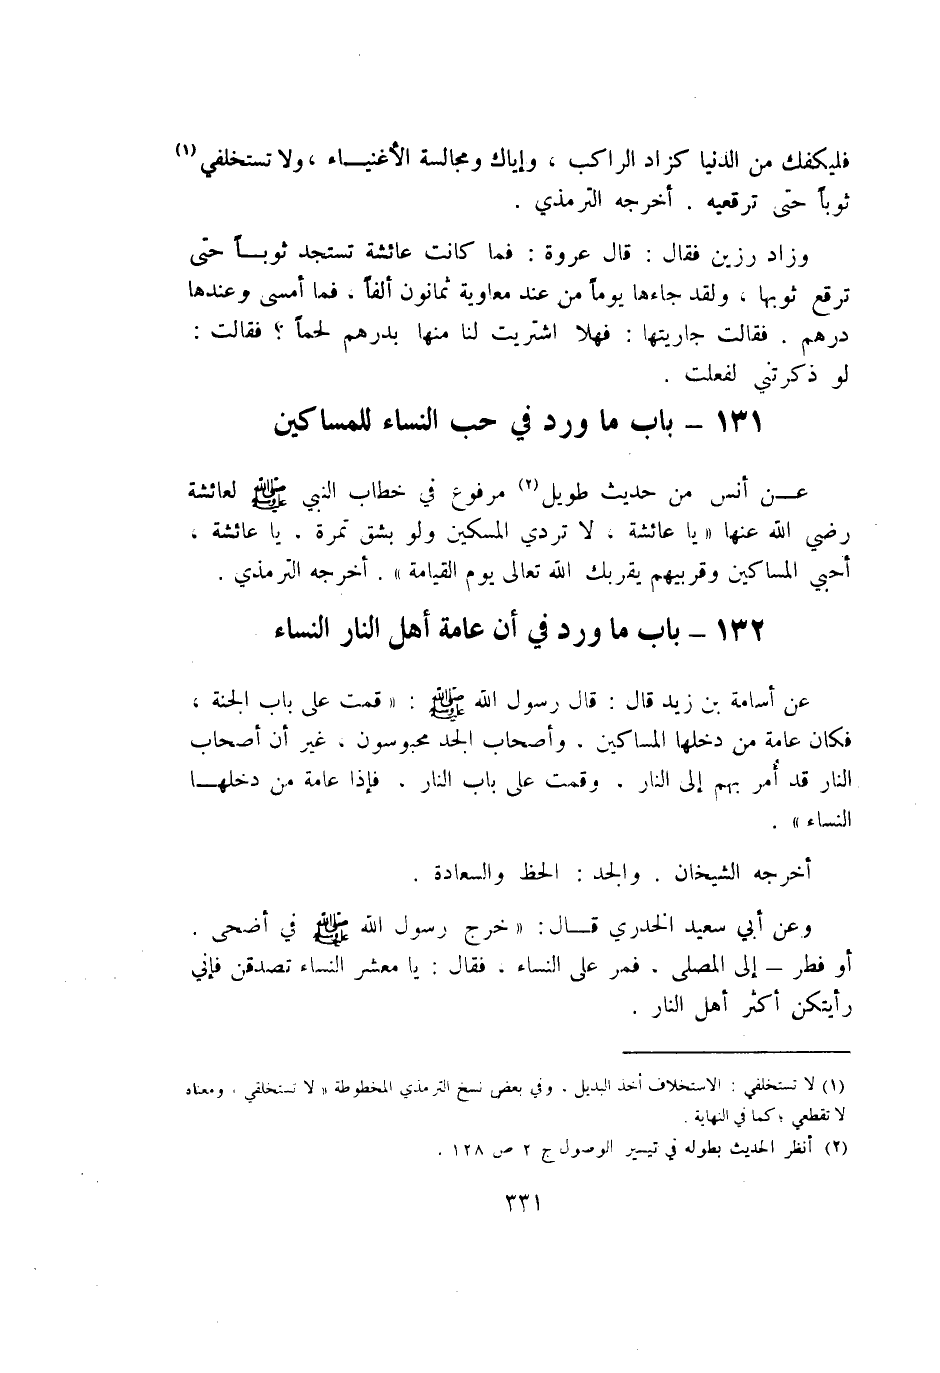 فليكفك من الدنيا كزاد الراكب ، وإياك ومجالسة الأغنيـــاء ، ولا تستخلفي (١)
ثوباً حتى ترقعيه . أخرجه الترمذي .
وزاد رزين فقال : قال عروة : فما كانت عائشة تستجد ثوبـــاً حتى
ترقع ثوبها ، ولقد جاءها يوماً من عند معاوية ثمانون ألفاً ، فما أمسى وعندها
درهم . فقالت جاريتها : فهلا اشتريت لنا منها بدرهم لحماً ؟ فقالت :
لو ذكرتني لفعلت .
١٣١ – باب ما ورد في حب النساء للمساكين
عــن أنس من حديث طويل (٢) مرفوع في خطاب النبي ﷺ لعائشة
رضي الله عنها « يا عائشة ، لا تردي المسكين ولو بشق تمرة . يا عائشة ،
أحبي المساكين وقربيهم يقربك الله تعالى يوم القيامة » . أخرجه الترمذي .
١٣٢ – باب ما ورد في أن عامة أهل النار النساء
عن أسامة بن زيد قال : قال رسول الله ﷺ : « قمت على باب الجنة ،
فكان عامة من دخلها المساكين . وأصحاب الجد محبوسون ، غير أن أصحاب
النار قد أُمر بهم إلى النار . وقمت على باب النار . فإذا عامة من دخلهــا
النساء » .
أخرجه الشيخان . والجد : الحظ والسعادة .
وعن أبي سعيد الخدري قــال : « خرج رسول الله ﷺ في أضحى .
أو فطر – إلى المصلى . فمر على النساء ، فقال : يا معشر النساء تصدقن فإني
رأيتكن أكثر أهل النار .
(١) لا تستخلفي : الاستخلاف أخذ البديل . وفي بعض نسخ الترمذي المخطوطة « لا تستخلفي ، ومعناه
لا تقطعي ؛ كما في النهاية .
(٢) أنظر الحديث بطوله في تيسير الوصول ج ٢ ص ١٢٨ .
٣٣١